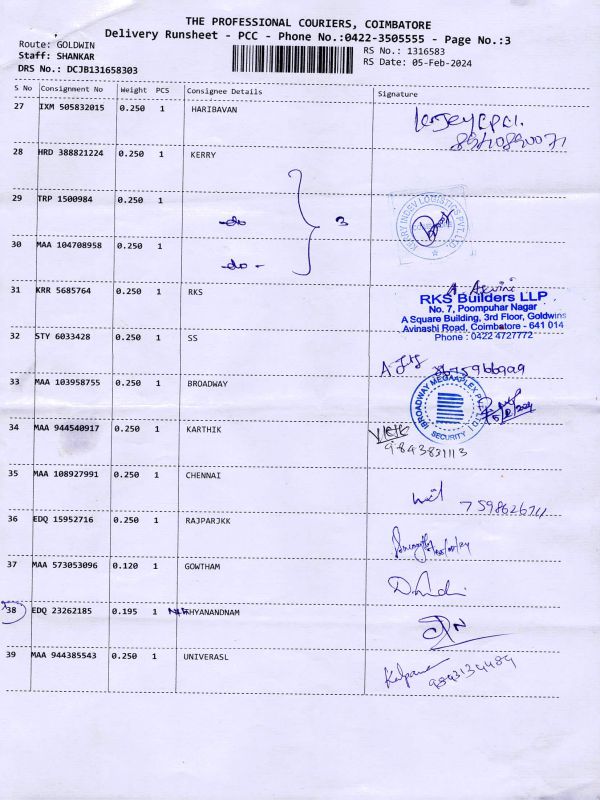 THE PROFESSIONAL COURIERS, COIMBATORE
Delivery Runsheet - PCC - Phone No.:0422-3505555 - Page No.:3
Route: GOLDWIN
Staff: SHANKAR
DRS No.: DCJB131658303
RS No.: 1316583
RS Date: 05-Feb-2024
S No Consignment No Weight PCS Consignee Details Signature
27 IXM 505832015 0.250 1 HARIBAVAN
28 HRD 388821224 0.250 1 KERRY
29 TRP 1500984 0.250 1 -do- 3
KERRY INDEV LOGISTICS PVT. LTD.
30 MAA 104708958 0.250 1 -do-
31 KRR 5685764 0.250 1 RKS
RKS Builders LLP
No. 7, Poompuhar Nagar
A Square Building, 3rd Floor, Goldwins
Avinashi Road, Coimbatore - 641 014
Phone : 0422 4727772
32 STY 6033428 0.250 1 SS
33 MAA 103958755 0.250 1 BROADWAY
BROADWAY MEGAAPLEX
SECURITY
34 MAA 944540917 0.250 1 KARTHIK
9843831113
35 MAA 108927991 0.250 1 CHENNAI
36 EDQ 15952716 0.250 1 RAJPARJKK
37 MAA 573053096 0.120 1 GOWTHAM
38 EDQ 23262185 0.195 1 HYANANDNAM
39 MAA 944385543 0.250 1 UNIVERASL
Kalpana